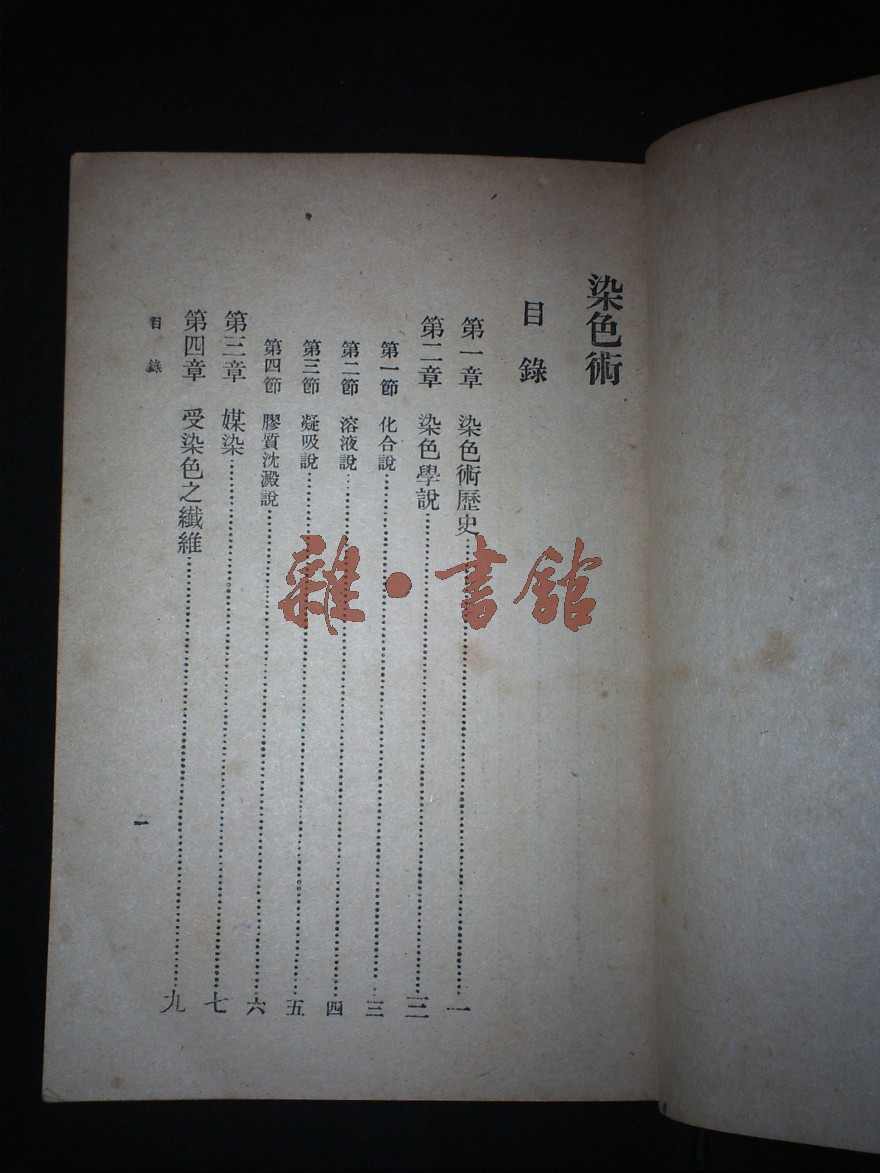 染色術
目錄
第一章 染色術歷史……一
第二章 染色學說……三
第一節 化合說……三
第二節 溶液說……四
第三節 凝吸說……五
第四節 膠質沈澱說……六
第三章 媒染……七
第四章 受染色之纖維……九
目錄
一
雜·書館